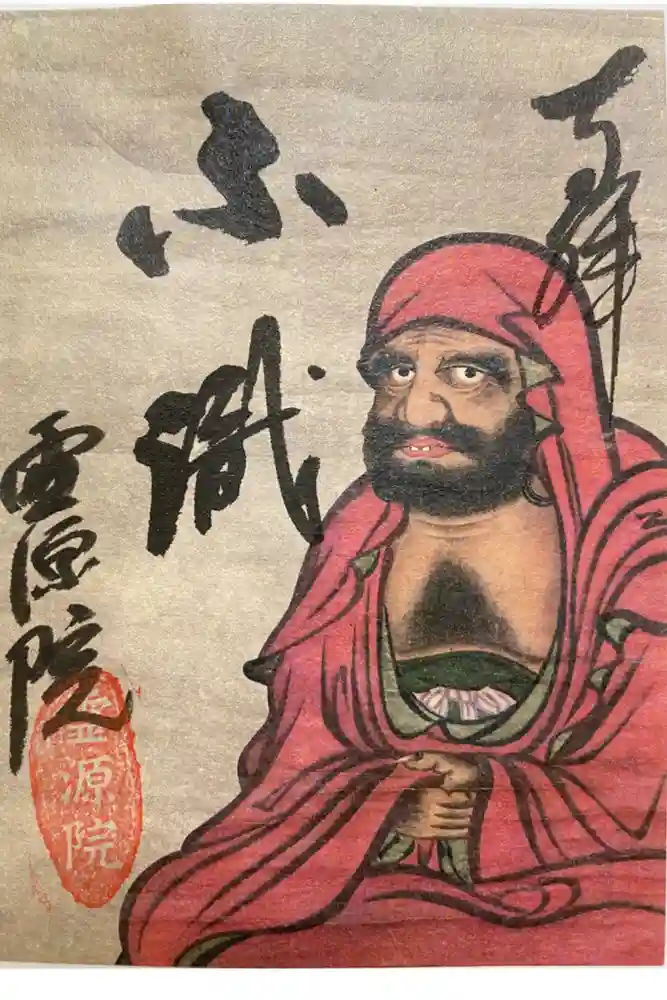 奉拝
不識
霊源院
霊源院